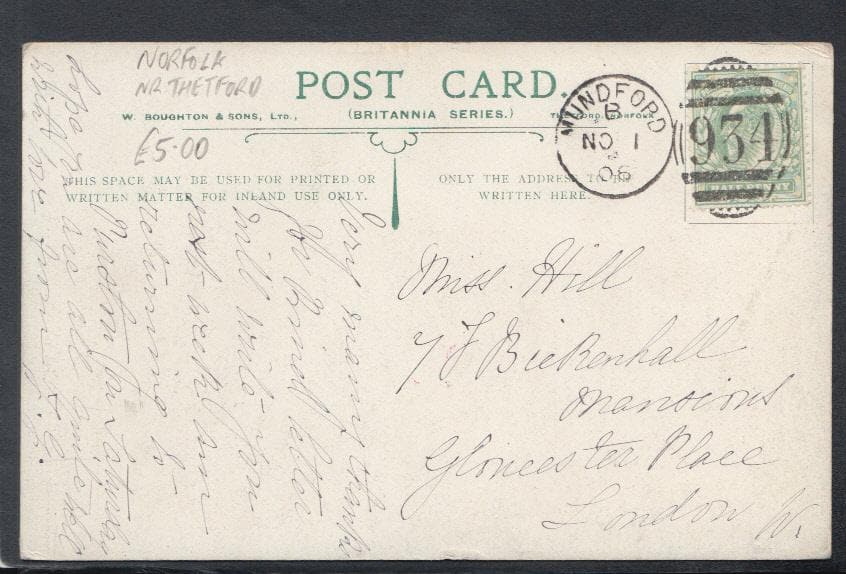 NORFOLK
NR. THETFORD
£5.00
POST CARD.
W. BOUGHTON & SONS, LTD.,
(BRITANNIA SERIES.)
THETFORD, NORFOLK
THIS SPACE MAY BE USED FOR PRINTED OR
WRITTEN MATTER FOR INLAND USE ONLY.
ONLY THE ADDRESS TO BE
WRITTEN HERE.
MUNDFORD
B
NO 1
06
934
HALFPENNY
Miss. Hill
7 F Bickenhall
Mansions
Gloucester Place
London W.
Very many thanks
for kind letter
will write you
next week am
returning to
London on Saturday
hope you are all quite well
with love from